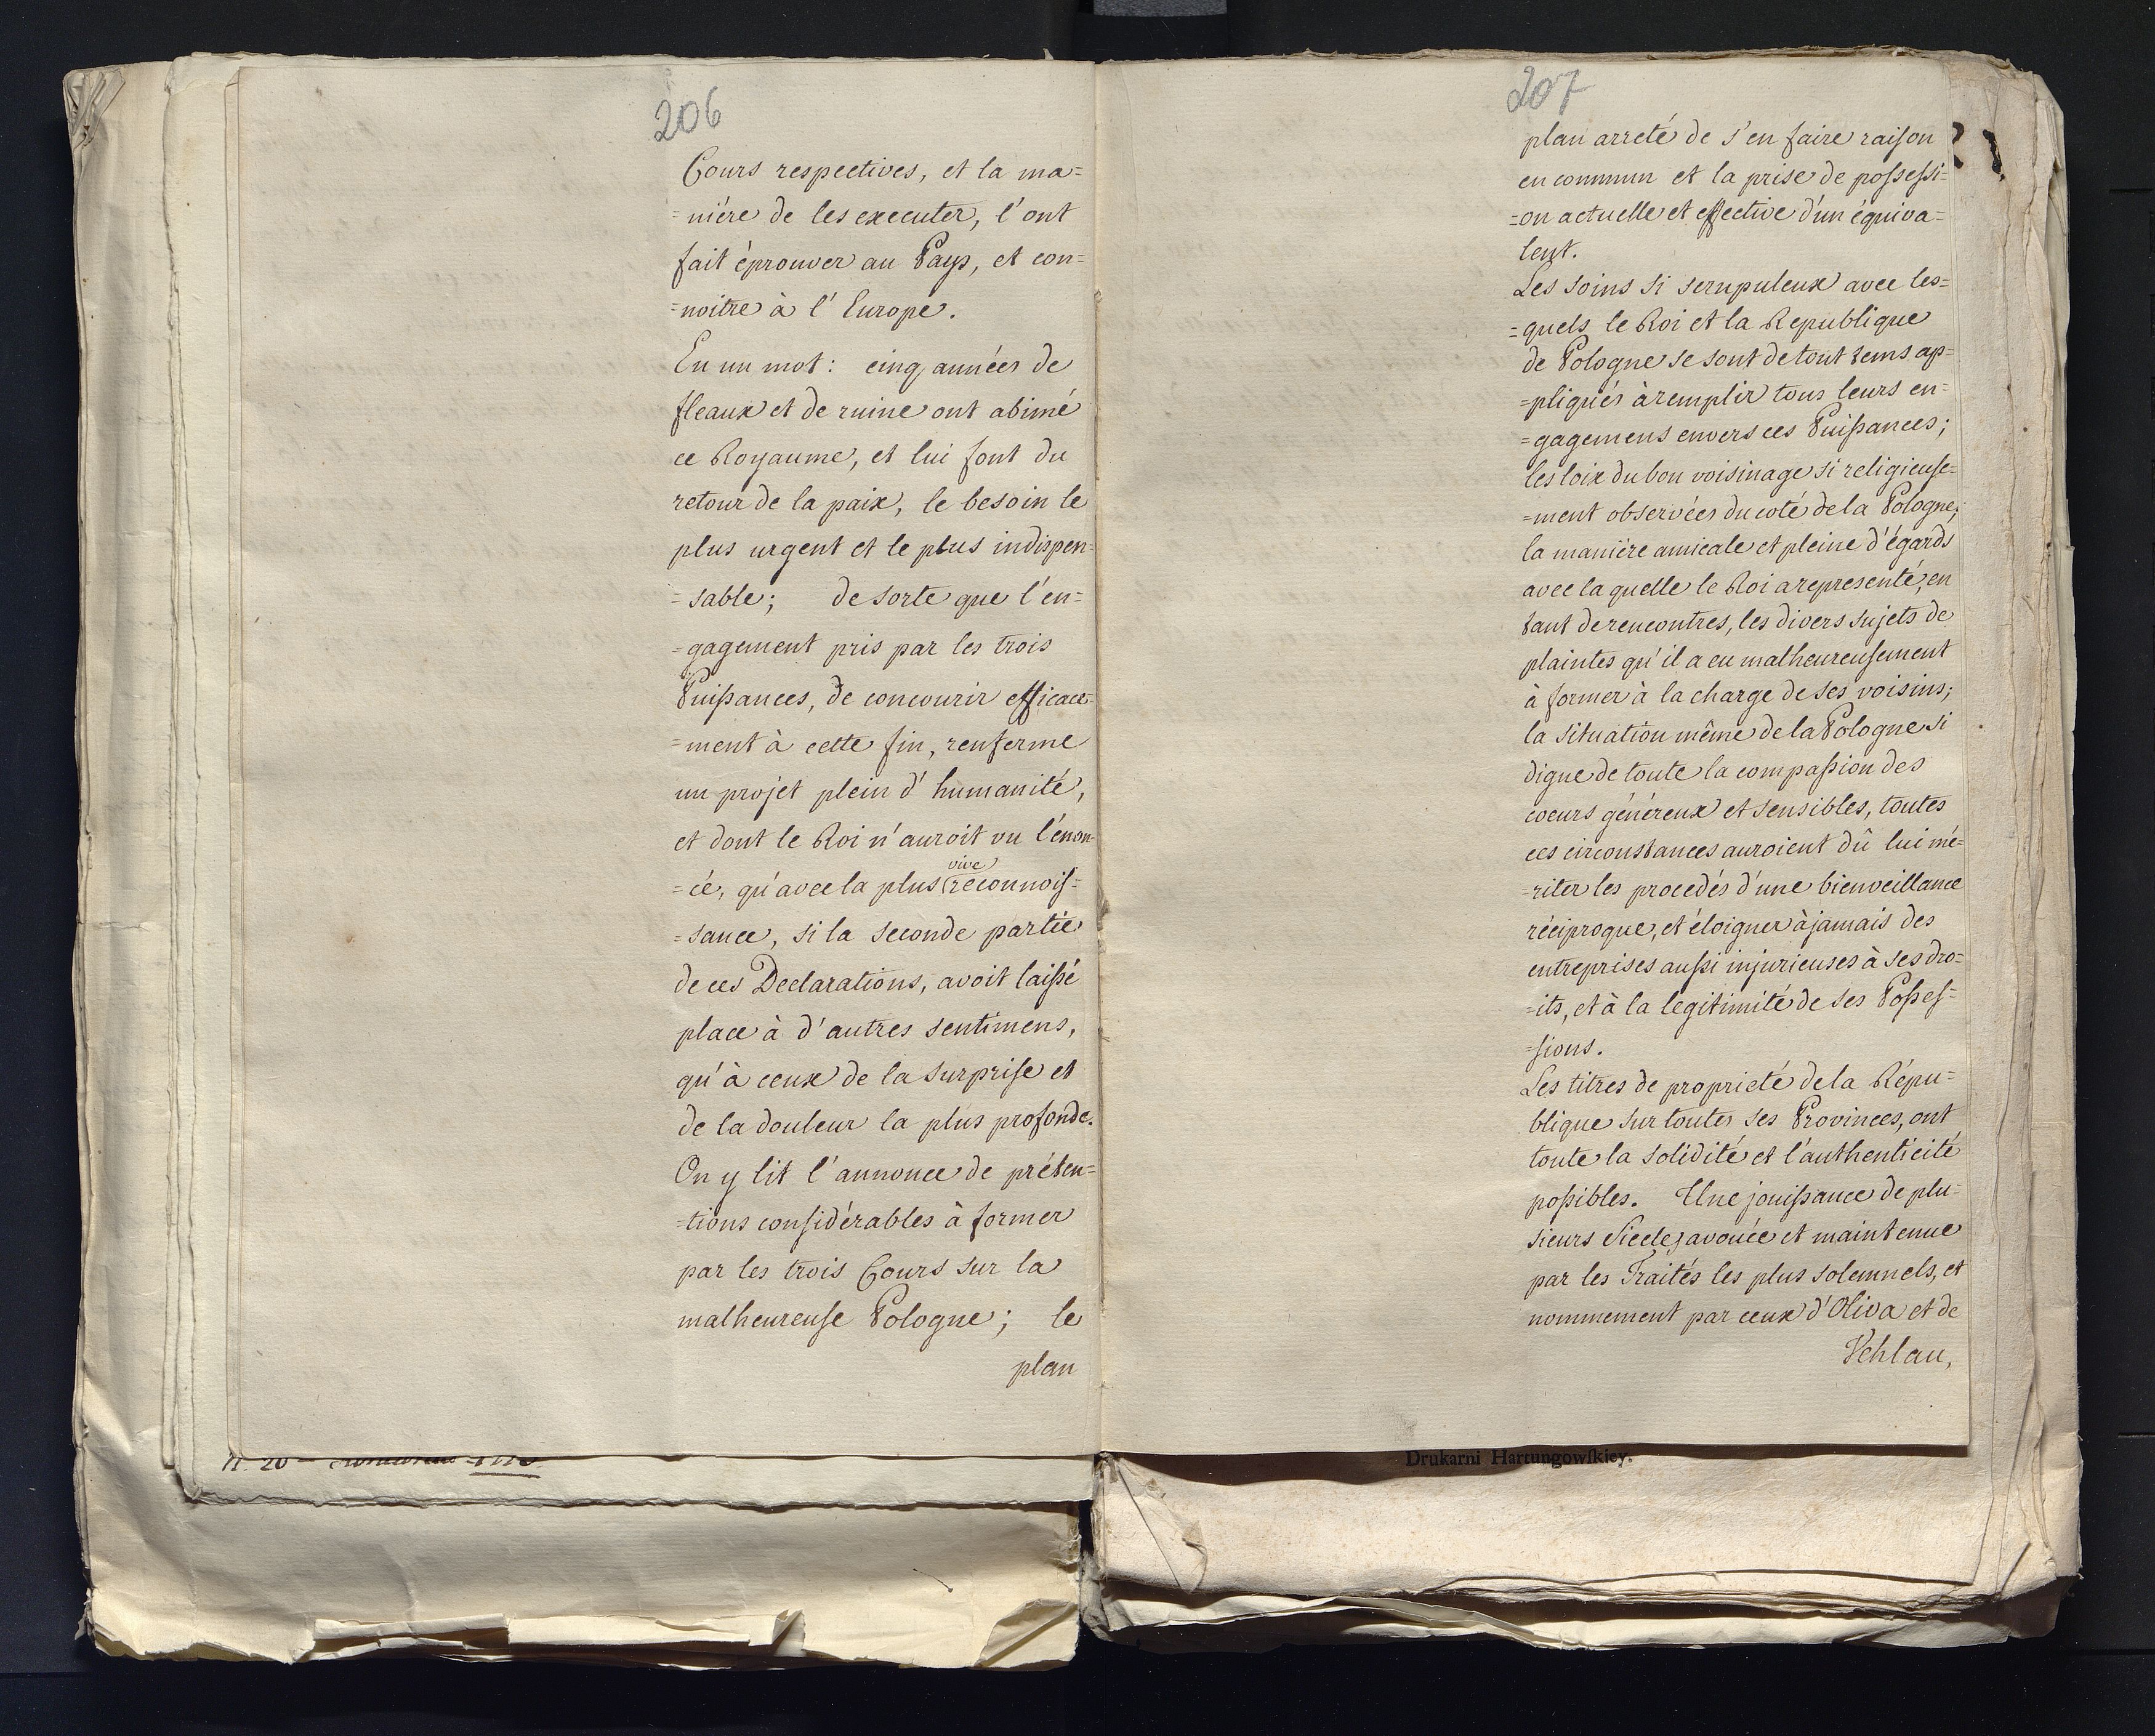 206
Cours respectives, et la ma=
=niére de les executer, l'ont
fait éprouver au Pays, et con=
=noitre à l'Europe.
En un mot: cinq années de
fleaux et de ruine ont abimé
ce Royaume, et lui font du
retour de la paix, le besoin le
plus urgent et le plus indispen=
=sable; de sorte que l'en=
=gagement pris par les trois
Puissances, de concourir efficace=
=ment à cette fin, renferme
un projet plein d'humanité,
et dont le Roi n'auroit vu l'énon=
vive
=cé, qu'avec la plus reconnois=
=sance, si la seconde partie
de ces Declarations, avoit laissé
place à d'autres sentimens,
qu'à ceux de la surprise et
de la douleur la plus profonde.
On y lit l'annonce de préten=
=tions considérables à former
par les trois Cours sur la
malheureuse Pologne; le
plan
207
plan arreté de s'en faire raison
en commun et la prise de possessi=
=on actuelle et effective d'un équiva=
lent.
Les soins si scrupuleux avec les=
=quels le Roi et la Republique
de Pologne se sont de tout tems ap=
=pliqués à remplir tous leurs en=
=gagemens envers ces Puissances;
les loix du bon voisinage si religieuse=
=ment observées du coté de la Pologne;
la maniére amicale et pleine d'égards
avec la quelle le Roi a representé, en
tant de rencontres, les divers sujets de
plaintes qu'il a eu malheureusement
à former à la charge de ses voisins;
la situation même de la Pologne si
digne de toute la compassion des
coeurs généreux et sensibles, toutes
ces circonstances auroient dû lui mé=
=riter les procedés d'une bienveillance
réciproque, et éloigner à jamais des
entreprises aussi injurieuses à ses dro=
=its, et à la legitimité de ses Posses=
=sions.
Les titres de proprieté de la Répu=
blique sur toutes ses Provinces, ont
toute la solidité et l'authenticité
possibles. Une jouissance de plu=
sieurs Siecles avouée et maintenue
par les Traités les plus solemnels, et
nommement par ceux d'Oliva et de
Vehlau,
Drukarni Hartungowskiey.